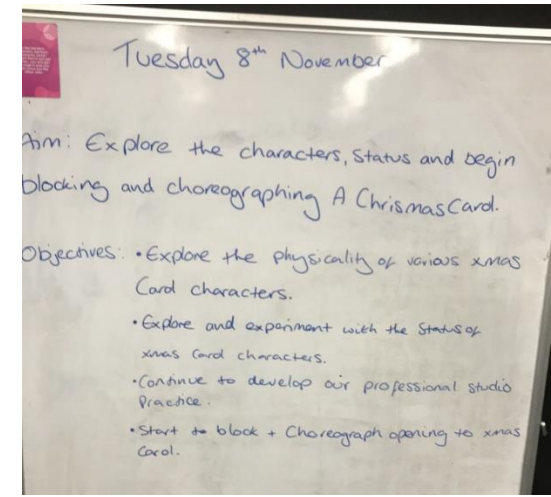 Tuesday 8th November
Aim: Explore the characters, Status and begin
blocking and choreographing A Chrismas Carol.
Objectives: • Explore the physicality of various xmas
Carol characters.
• Explore and experiment with the Status of
xmas Carol characters.
• Continue to develop our professional studio
Practice.
• Start to block + Choreograph opening to xmas
Carol.